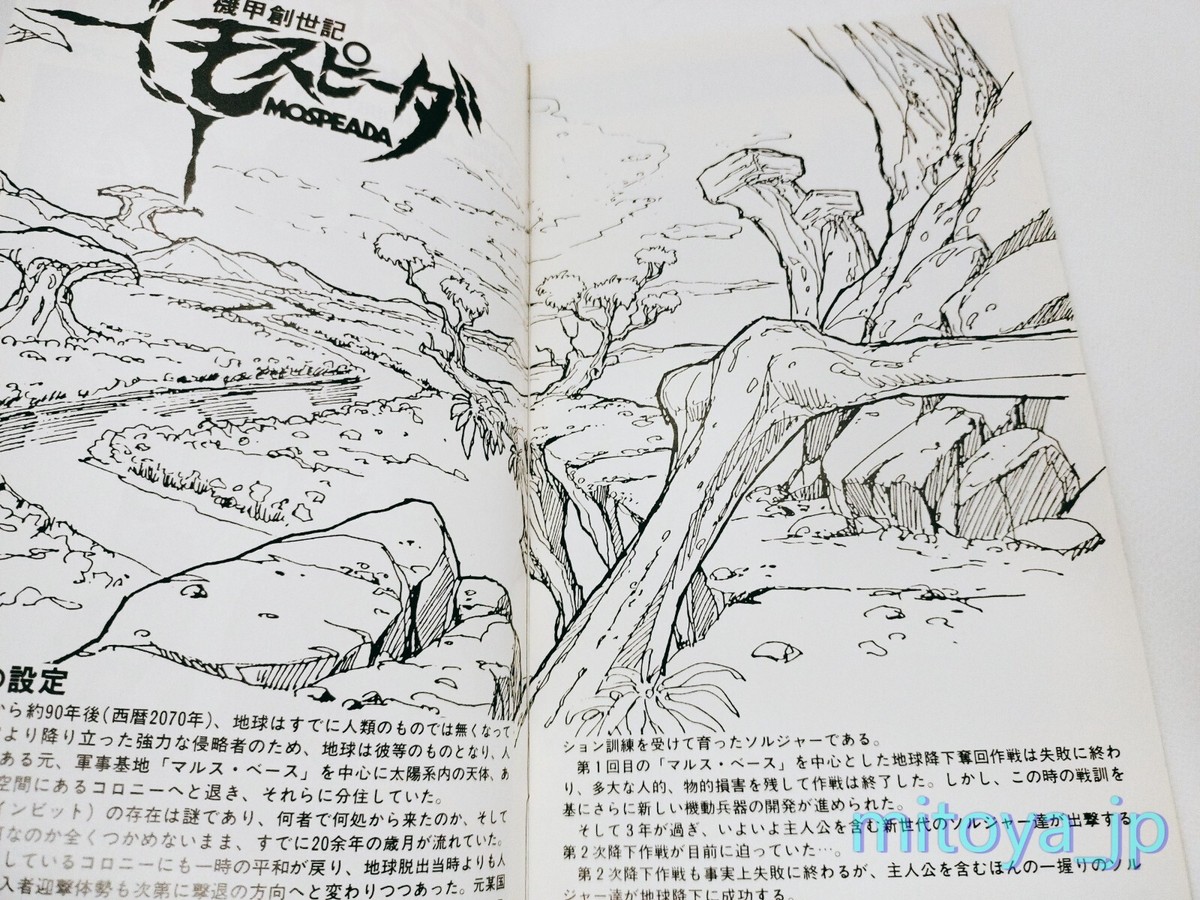 機甲創世記
モスピーダ
MOSPEADA
の設定
から約90年後(西暦2070年)、地球はすでに人類のものでは無くなって
より降り立った強力な侵略者のため、地球は彼等のものとなり、人
ある元、軍事基地「マルス・ベース」を中心に太陽系内の天体、あ
空間にあるコロニーへと退き、それらに分住していた。
インビット)の存在は謎であり、何者で何処から来たのか、そして
なのか全くつかめないまま、すでに20余年の歳月が流れていた。
しているコロニーにも一時の平和が戻り、地球脱出当時よりも人
入者迎撃体勢も次第に撃退の方向へと変わりつつあった。元某国
ション訓練を受けて育ったソルジャーである。
第1回目の「マルス・ベース」を中心とした地球降下奪回作戦は失敗に終わ
り、多大な人的、物的損害を残して作戦は終了した。しかし、この時の戦訓を
基にさらに新しい機動兵器の開発が進められた。
そして3年が過ぎ、いよいよ主人公を含む新世代のソルジャー達が出撃する
第2次降下作戦が目前に迫っていた…。
第2次降下作戦も事実上失敗に終わるが、主人公を含むほんの一握りのソル
ジャー達が地球降下に成功する。
mitoya_jp